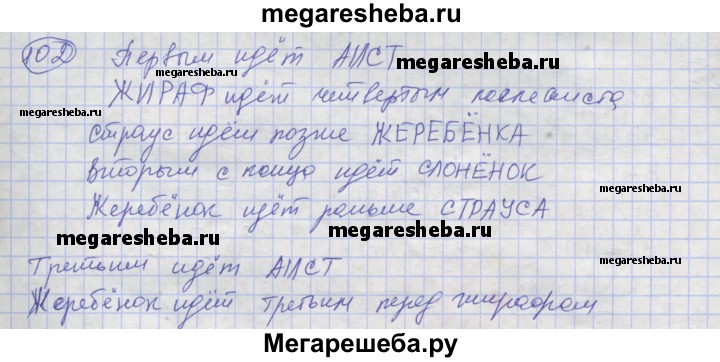 megaresheba.ru
102 Первым идёт АИСТ
megaresheba.ru
megaresheba.ru
megaresheba.ru
ЖИРАФ идёт четвертым после аиста
megaresheba.ru
Страус идёт позже ЖЕРЕБЁНКА
Вторым с конца идёт СЛОНЁНОК
megaresheba.ru
Жеребёнок идёт раньше СТРАУСА
megaresheba.ru
megaresheba.ru
Третьим идёт АИСТ
Жеребёнок идёт третьим перед жирафом
Мегарешеба.ру